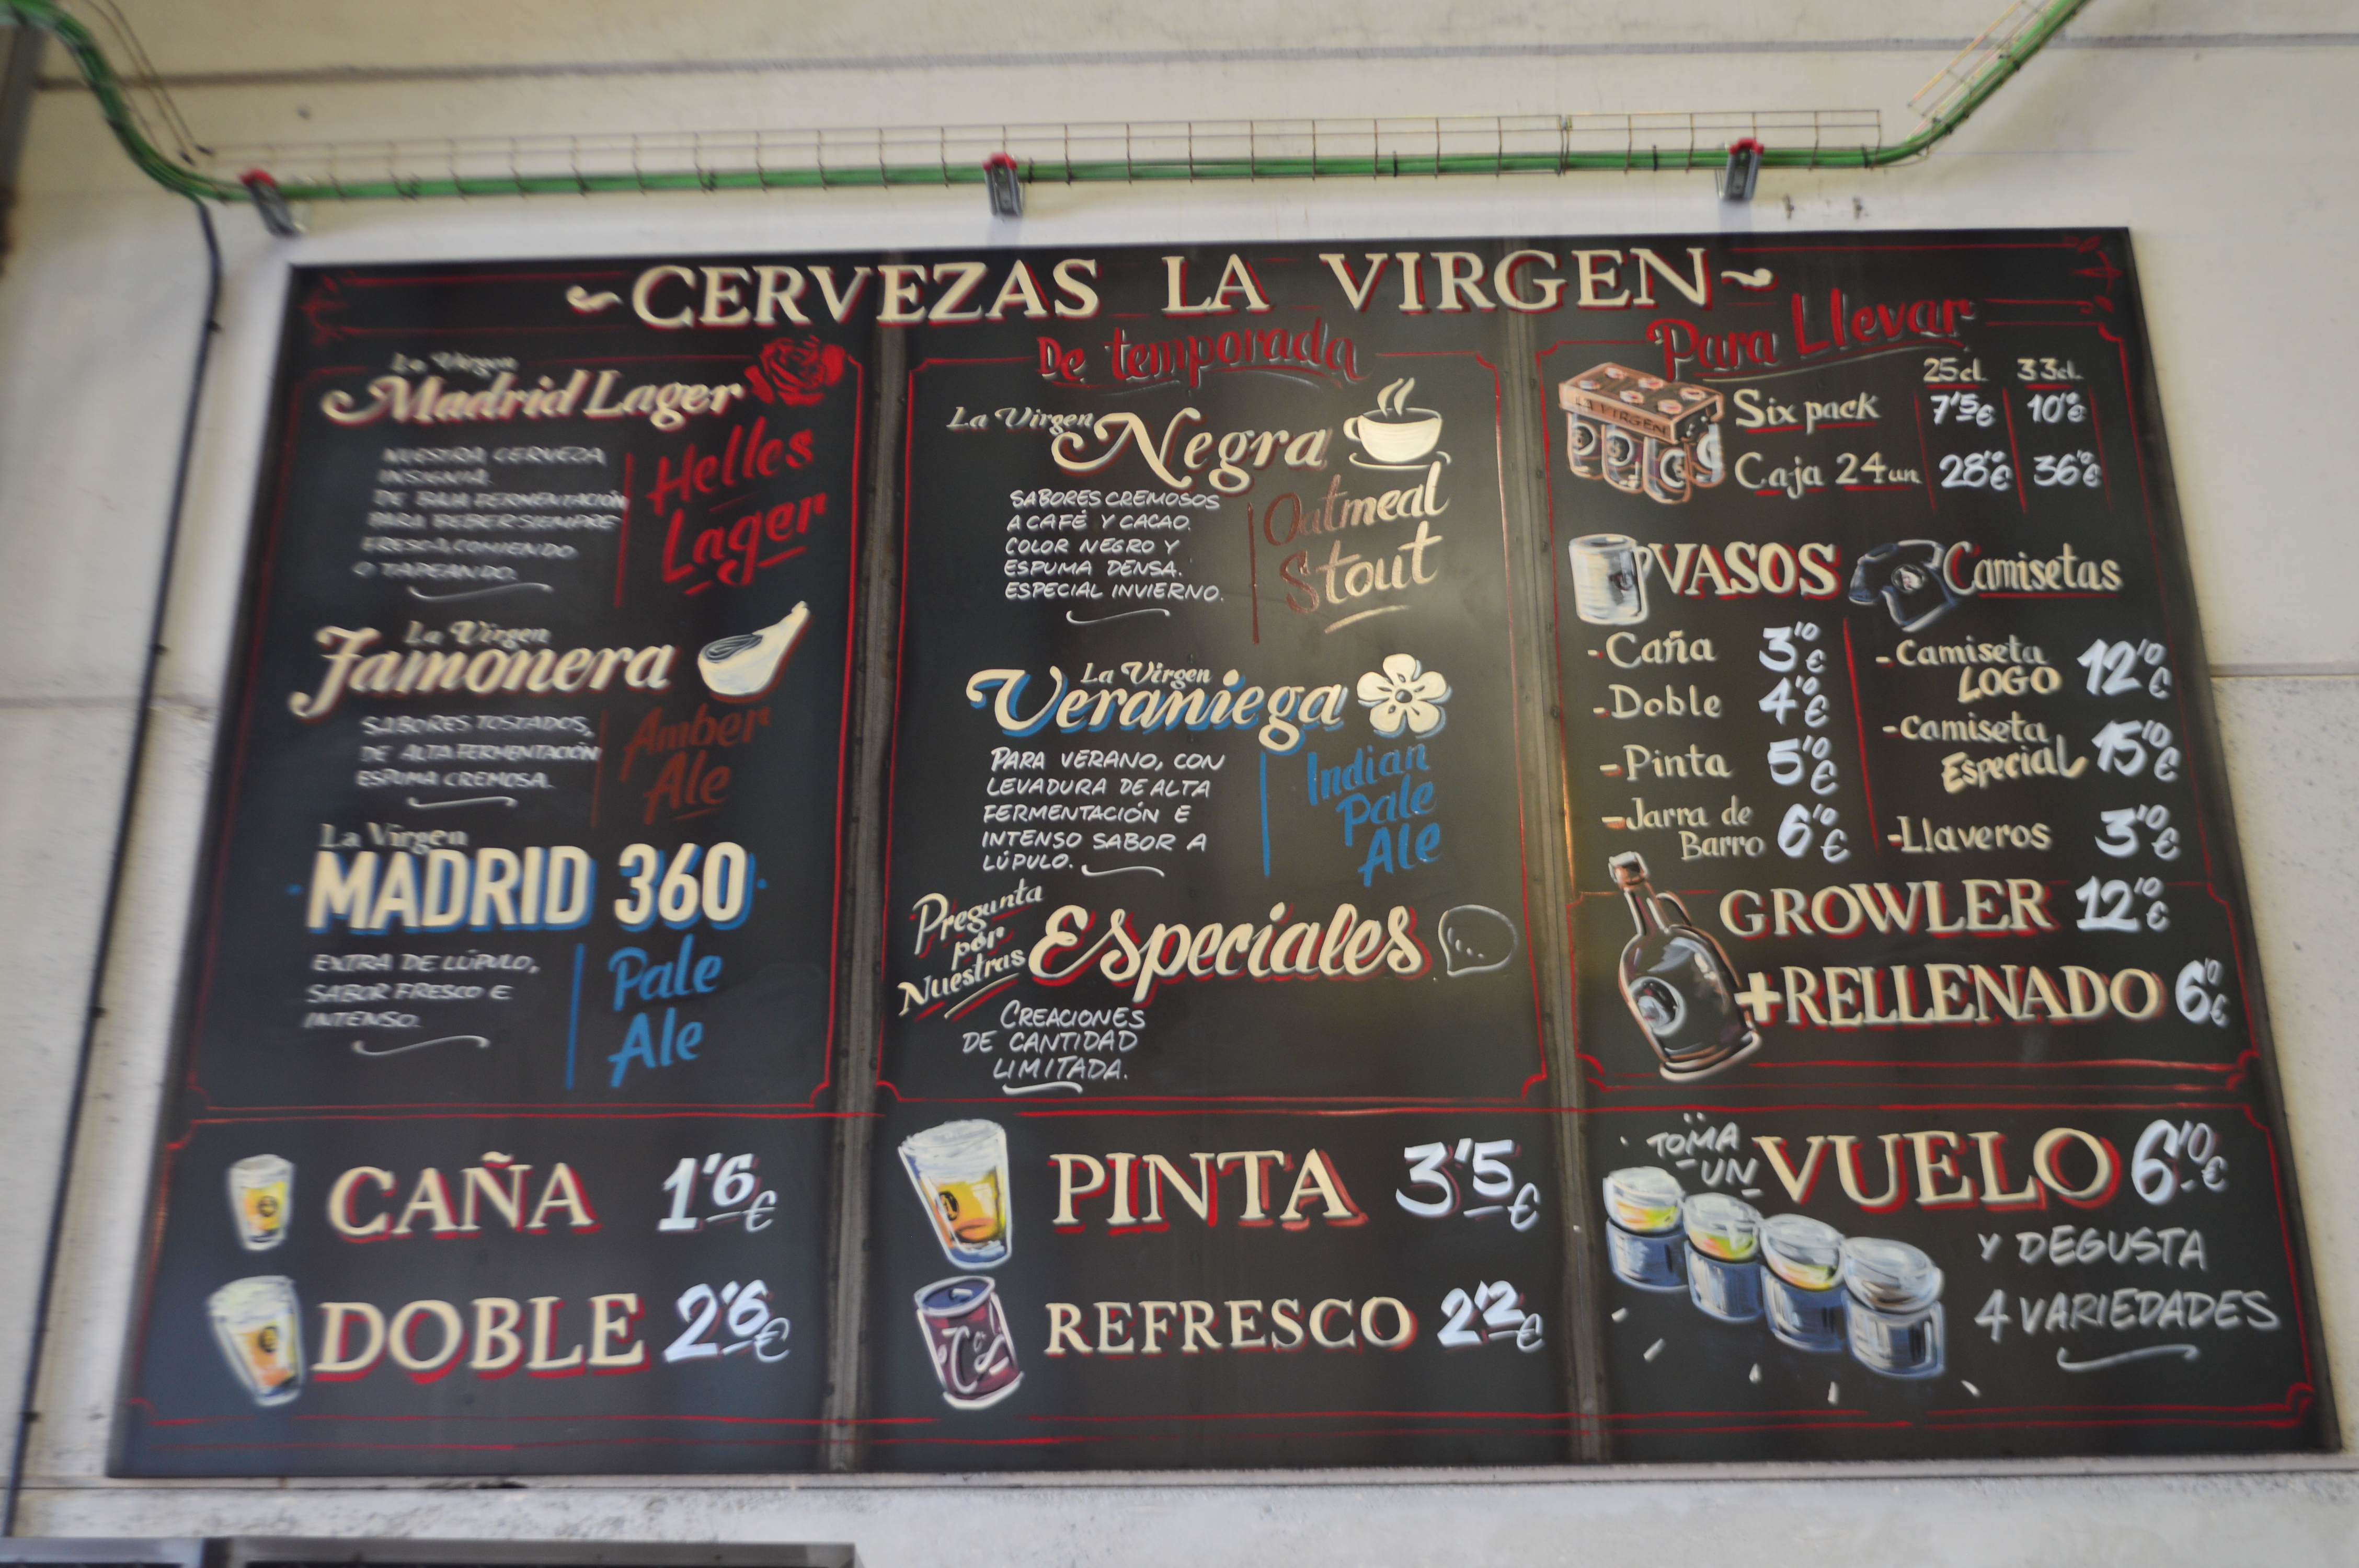 ~CERVEZAS LA VIRGEN~
La Virgen
Madrid Lager
NUESTRA CERVEZA
INSIGNIA.
DE BAJA FERMENTACIÓN
PARA BEBER SIEMPRE
FRESCA, COMIENDO
O TAPEANDO.
Helles
Lager
La Virgen
Jamonera
SABORES TOSTADOS,
DE ALTA FERMENTACIÓN
ESPUMA CREMOSA.
Amber
Ale
La Virgen
·MADRID 360·
EXTRA DE LÚPULO,
SABOR FRESCO E
INTENSO.
Pale
Ale
De temporada
La Virgen
Negra
SABORES CREMOSOS
A CAFÉ Y CACAO.
COLOR NEGRO Y
ESPUMA DENSA.
ESPECIAL INVIERNO.
Oatmeal
Stout
La Virgen
Veraniega
PARA VERANO, CON
LEVADURA DE ALTA
FERMENTACIÓN E
INTENSO SABOR A
LÚPULO.
Indian
Pale
Ale
Pregunta
por
Nuestras
Especiales
CREACIONES
DE CANTIDAD
LIMITADA.
Para Llevar
LA VIRGEN
25cl. 33cl.
Six pack 7'5€ 10'0€
Caja 24un 28'0€ 36'0€
VASOS
-Caña 3'10€
-Doble 4'10€
-Pinta 5'10€
-Jarra de
Barro 6'10€
Camisetas
-Camiseta
LOGO 12'10€
-Camiseta
Especial 15'10€
-Llaveros 3'10€
GROWLER 12'10€
+RELLENADO 6'10€
CAÑA 1'6€
DOBLE 2'6€
PINTA 3'5€
REFRESCO 2'2€
TOMA
-UN-
VUELO 6'10€
Y DEGUSTA
4 VARIEDADES